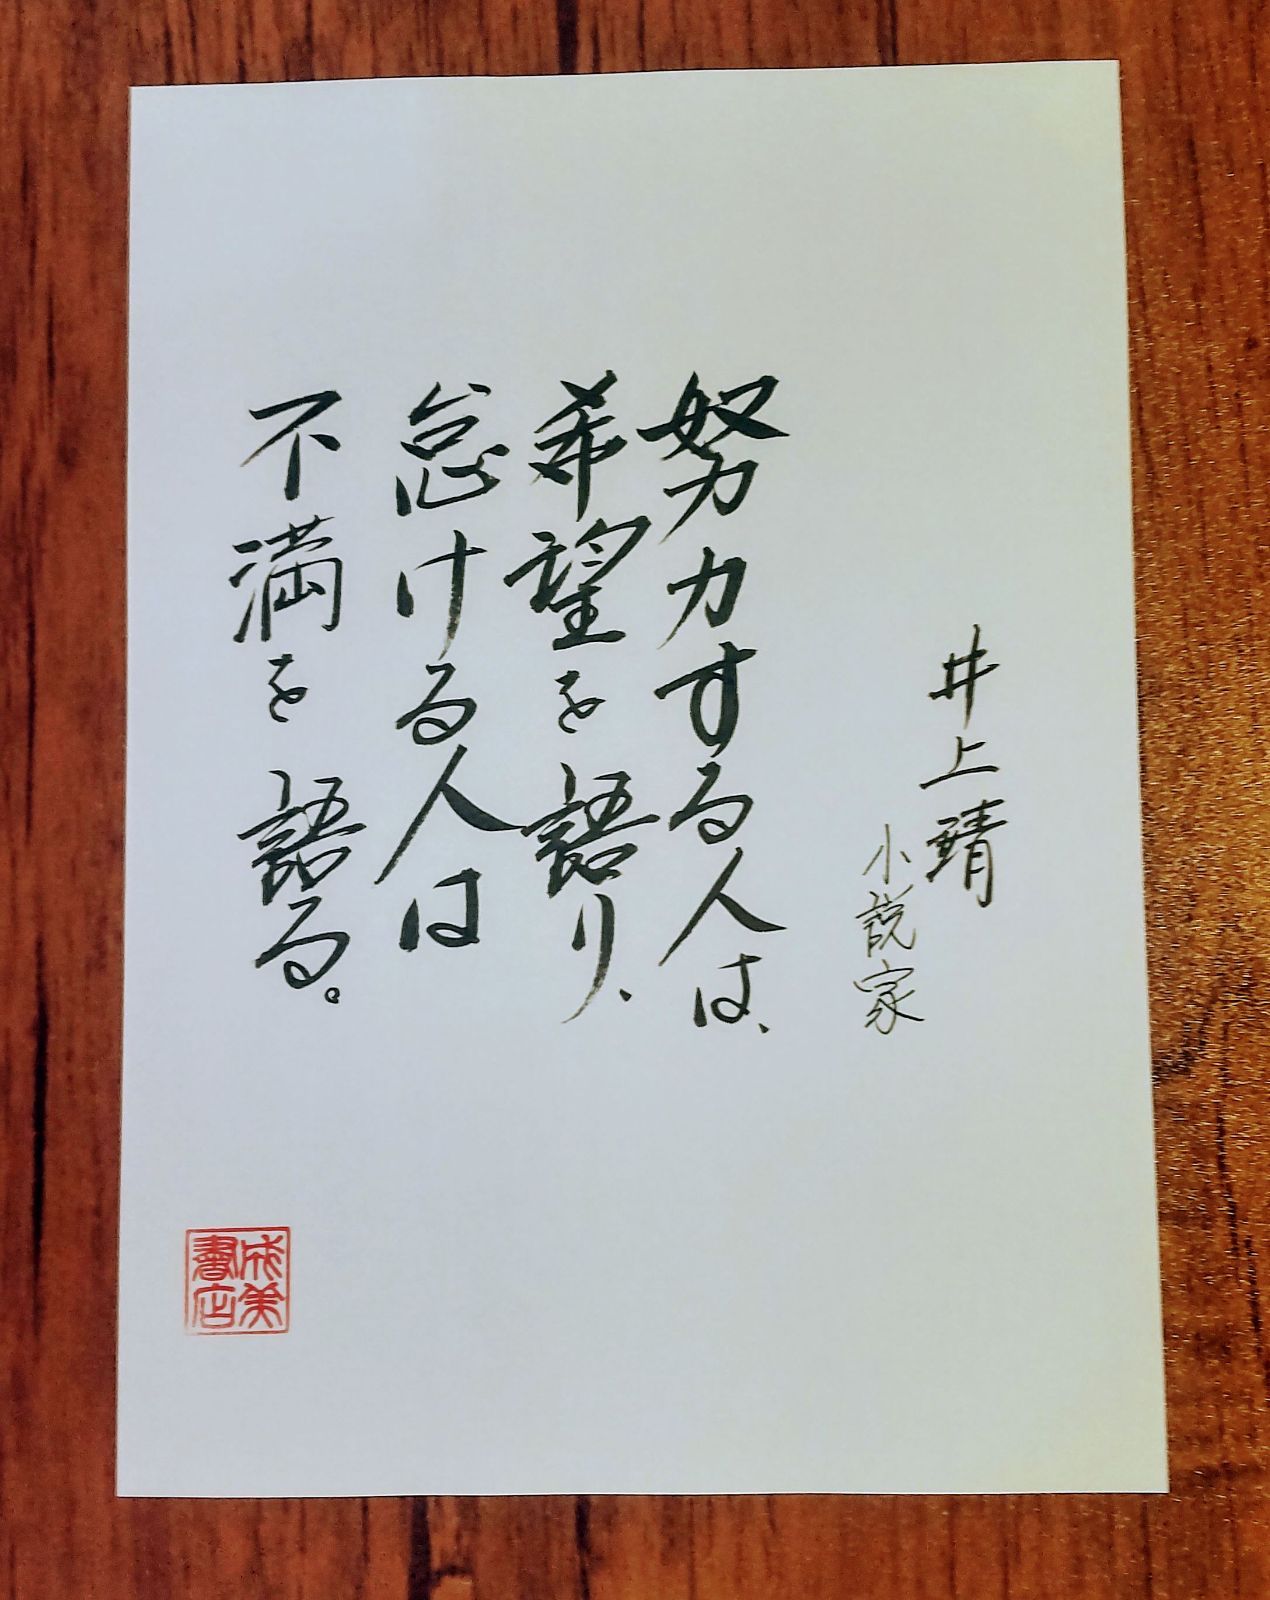 井上靖
小説家
努力する人は、
希望を語り、
怠ける人は
不満を語る。
成美
書店